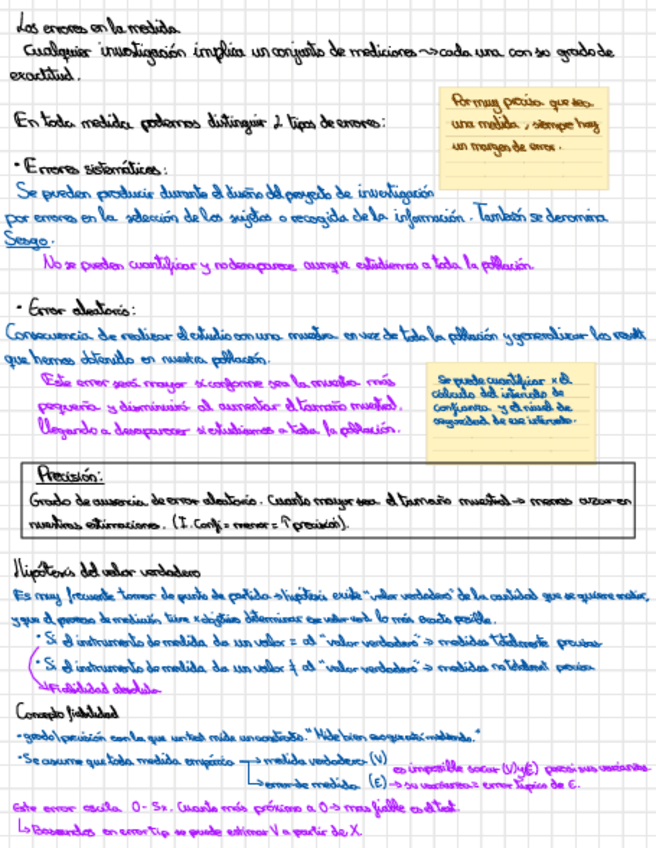 Los errores en la medida
Cualquier investigación implica un conjunto de mediciones → cada una con su grado de
exactitud.
Por muy precisa que sea
una medida, siempre hay
un margen de error.
En toda medida podemos distinguir 2 tipos de errores:
· Errores sistemáticos:
Se pueden producir durante el diseño del proyecto de investigación
por errores en la selección de los sujetos o recogida de la información. También se denomina
Sesgo.
No se pueden cuantificar y no desaparece aunque estudiemos a toda la población.
· Error aleatorio:
Consecuencia de realizar el estudio con una muestra en vez de toda la población y generalizar los result
que hemos obtenido en nuestra población.
Este error será mayor si conforme sea la muestra más
pequeña y disminuirá al aumentar el tamaño muestral.
llegando a desaparecer si estudiamos a toda la población.
Se puede cuantificar x el
cálculo del intervalo de
confianza y el nivel de
seguridad de ese intervalo.
Precisión:
Grado de ausencia de error aleatorio. Cuanto mayor sea el tamaño muestral → menos azar en
nuestras estimaciones. (I. Conf = menor = ↑ precisión).
Hipótesis del valor verdadero
Es muy frecuente tomar de punto de partida → hipótesis existe "valor verdadero" de la cantidad que se quiere medir,
y que el proceso de medición tiene x objetivo determinar ese valor verd. lo más exacto posible.
· Si el instrumento de medida da un valor = al "valor verdadero" → medidas totalmente precisas
· Si el instrumento de medida da un valor ≠ al "valor verdadero" → medidas no totalment precisas
↳ Fiabilidad absoluta
Concepto fiabilidad
· grado/precisión con la que un test mide un constructo. "Mide bien eso que está midiendo."
· Se asume que toda medida empírica → medida verdadera (V)
↳ error de medida (E)
es imposible sacar (V) y (E) pero si sus varianzas.
→ su varianza = error típico de E.
Este error oscila 0 - Sx. Cuanto más próximo a 0 → mas fiable es el test.
↳ Basándos en error tip se puede estimar V a partir de X.